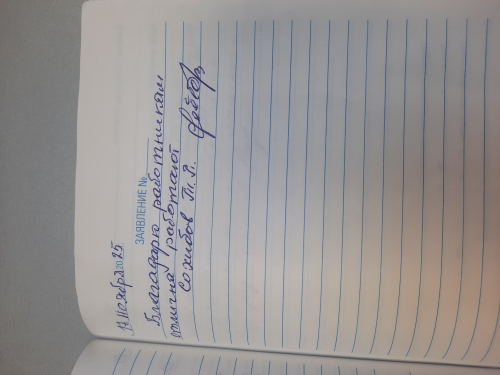 13 Ноября 2025
ЗАЯВЛЕНИЕ №
Благадарю работникам
отлична работают
Сохибов Т. Р.